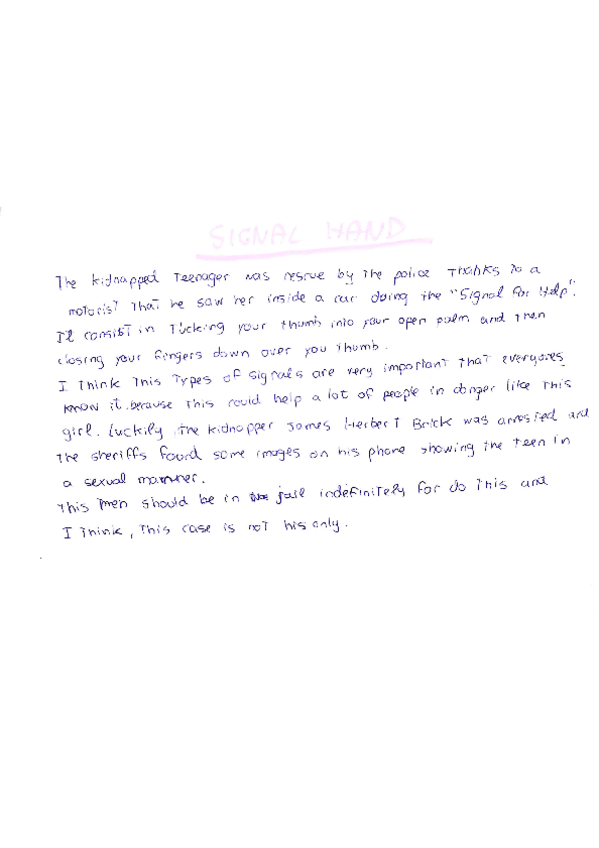 SIGNAL HAND
The kidnapped teenager was rescue by the police thanks to a
motorist that he saw her inside a car doing the "Signal for Help".
It consist in tucking your thumb into your open palm and then
closing your fingers down over you thumb.
I think this types of signals are very important that everyones
know it because this could help a lot of people in danger like this
girl. Luckily, the kidnapper James Herbert Brick was arrested and
the sheriffs found some images on his phone showing the teen in
a sexual manner.
This men should be in jail indefinitely for do this and
I think, this case is not his only.